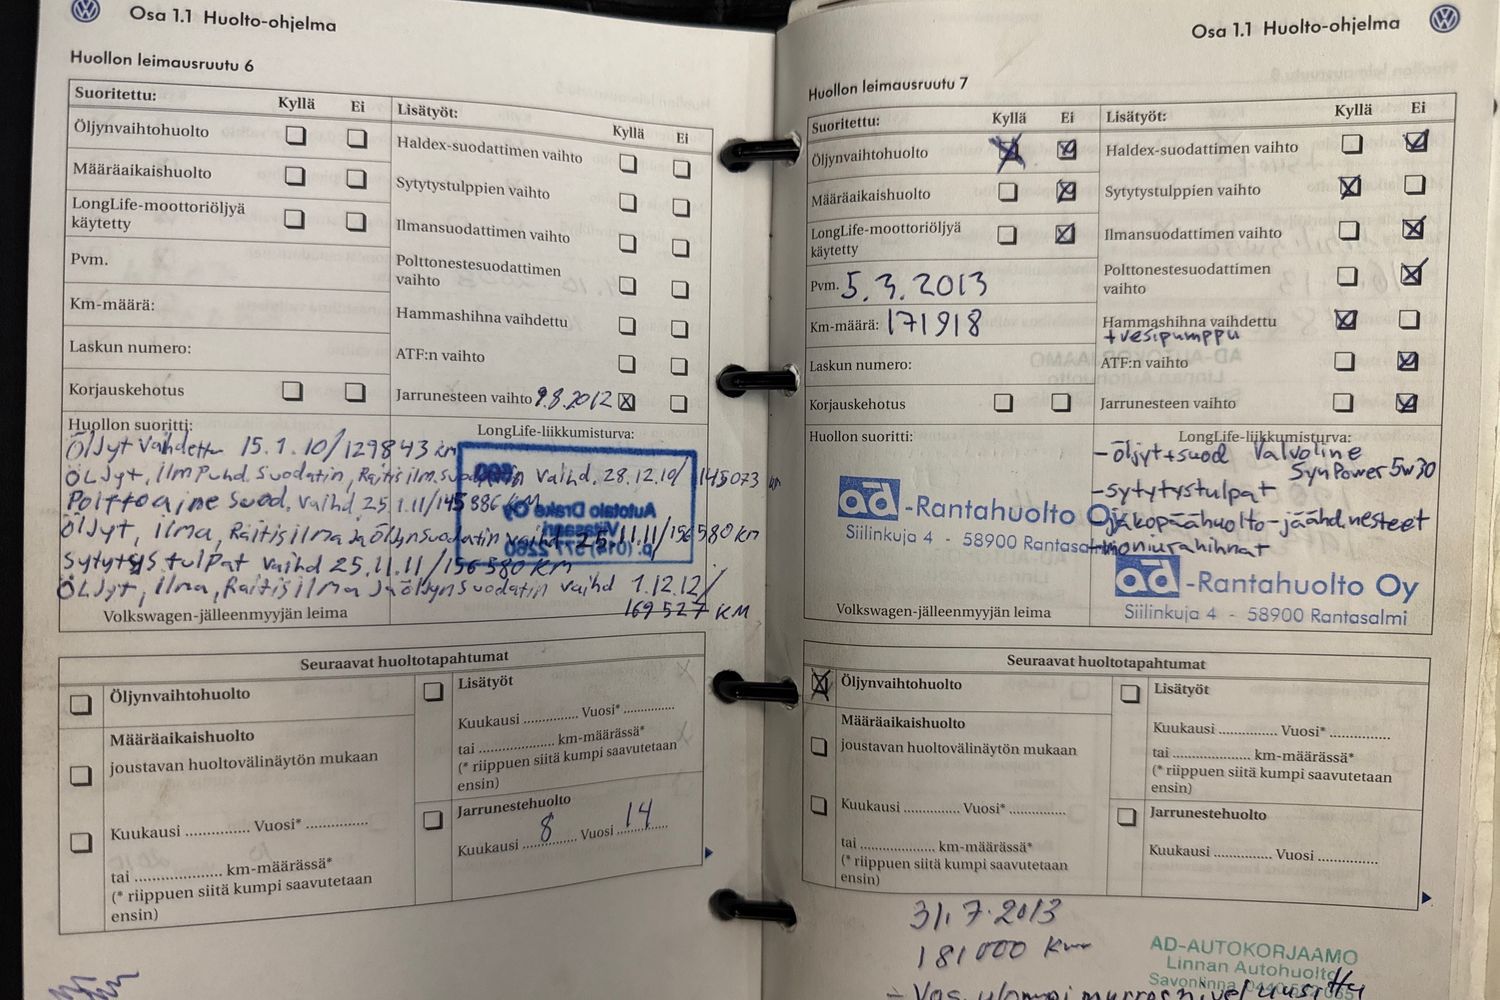 Osa 1.1 Huolto-ohjelma
Huollon leimausruutu 6
Suoritettu:
Kyllä
Ei
Öljynvaihtohuolto
Määräaikaishuolto
LongLife-moottoriöljyä
käytetty
Pvm.
Km-määrä:
Laskun numero:
Korjauskehotus
Lisätyöt:
Kyllä
Ei
Haldex-suodattimen vaihto
Sytytystulppien vaihto
Ilmansuodattimen vaihto
Polttonestesuodattimen
vaihto
Hammashihna vaihdettu
ATF:n vaihto
Jarrunesteen vaihto 9.8.2012
Huollon suoritti:
LongLife-liikkumisturva:
Öljyt vaihdettu 15.1.10/129843 km
Öljyt, ilmpuhd. suodatin, Raitisilm.suodatin vaihd. 28.12.10/145073 km
Polttoaine suod. vaihd 25.1.11/145886 KM
Öljyt, ilma, Raitisilma ja öljynsuodatin vaihd 25.11.11/156580 KM
Sytytystulpat vaihd 25.11.11/156580 KM
Öljyt, ilma, Raitisilma ja öljynsuodatin vaihd 1.12.12/
169527 KM
Autotalo Drake Oy
Volkswagen-jälleenmyyjän leima
Seuraavat huoltotapahtumat
Öljynvaihtohuolto
Määräaikaishuolto
joustavan huoltovälinäytön mukaan
Kuukausi ............... Vuosi* ..............
tai .................... km-määrässä*
(* riippuen siitä kumpi saavutetaan
ensin)
Lisätyöt
Kuukausi .............. Vuosi* .............
tai ................... km-määrässä*
(* riippuen siitä kumpi saavutetaan
ensin)
Jarrunestehuolto
Kuukausi 8 Vuosi 14
Osa 1.1 Huolto-ohjelma
Huollon leimausruutu 7
Suoritettu:
Kyllä
Ei
Öljynvaihtohuolto
Määräaikaishuolto
LongLife-moottoriöljyä
käytetty
Pvm. 5.3.2013
Km-määrä: 171918
Laskun numero:
Korjauskehotus
Lisätyöt:
Kyllä
Ei
Haldex-suodattimen vaihto
Sytytystulppien vaihto
Ilmansuodattimen vaihto
Polttonestesuodattimen
vaihto
Hammashihna vaihdettu
+vesipumppu
ATF:n vaihto
Jarrunesteen vaihto
Huollon suoritti:
LongLife-liikkumisturva:
-öljyt+suod Valvoline
SynPower 5w30
-sytytystulpat
-jakopäähuolto-jäähd.nesteet
-moniurahihnat
ad-Rantahuolto Oy
Siilinkuja 4 - 58900 Rantasalmi
ad-Rantahuolto Oy
Siilinkuja 4 - 58900 Rantasalmi
Volkswagen-jälleenmyyjän leima
Seuraavat huoltotapahtumat
Öljynvaihtohuolto
Määräaikaishuolto
joustavan huoltovälinäytön mukaan
Kuukausi ............. Vuosi* .............
tai .................... km-määrässä*
(* riippuen siitä kumpi saavutetaan
ensin)
Lisätyöt
Kuukausi .............. Vuosi* ..............
tai ................... km-määrässä*
(* riippuen siitä kumpi saavutetaan
ensin)
Jarrunestehuolto
Kuukausi .............. Vuosi ..............
31.7.2013
181000 km
AD-AUTOKORJAAMO
Linnan Autohuolto
Savonlinna
- Vas. ulompi murrosnivel uusittu